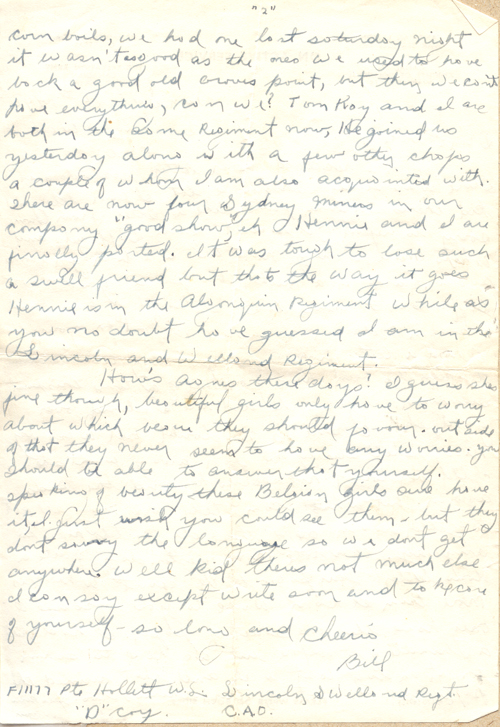 "2"
corn boils, we had one last saturday night
it wasn't as good as the ones we used to have
back a good old crows point, but then we can't
have everything, can we? Tom Roy and I are
both in the same Regiment now, He joined us
yesterday along with a few other chaps
a couple of whom I am also acquainted with.
There are now four Sydney miners in our
company "good show," eh Hennie and I are
finally parted. It was tough to lose such
a swell friend but thats the way it goes
Hennie is in the Algonquin Regiment while as
you no doubt have guessed I am in the
Lincoln and Welland Regiment.
How's Agnes these days? I guess she's
fine though, beautiful girls only have to worry
about which beau they should favour. outside
of that they never seem to have any worries. you
should be able to answer that yourself.
speaking of beauty these Belgian girls sure have
it. I just wish you could see them - but they
dont savvy the language so we dont get
anywhere. Well kid theres not much else
I can say except write soon and take care
of yourself - so long and Cheerio
Bill
F/1177 Pte Hollett W.L. Lincoln & Welland Regt.
"D" Coy. C.A.O.